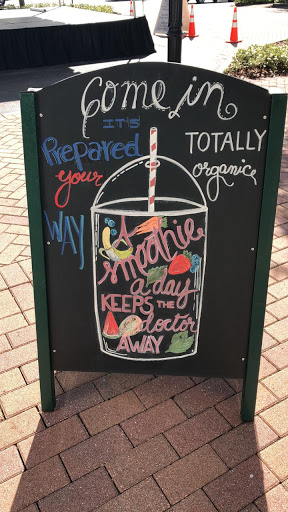 Come in,
IT'S
Prepared
your
WAY
TOTALLY
organic
a Smoothie
a day
KEEPS THE
doctor
AWAY